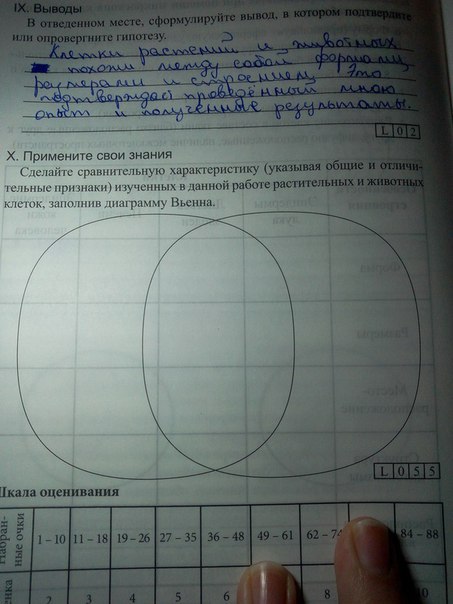 IX. Выводы
В отведенном месте, сформулируйте вывод, в котором подтвердите
или опровергните гипотезу.
Клетки растений и животных
похожи между собой формами,
размерами и строением. Это
подтверждает проведённый мною
опыт и полученные результаты.
L 0 2
X. Примените свои знания
Сделайте сравнительную характеристику (указывая общие и отличи-
тельные признаки) изученных в данной работе растительных и животных
клеток, заполнив диаграмму Вьенна.
L 0 5 5
Шкала оценивания
Набран-
ные очки
1 – 10 11 – 18 19 – 26 27 – 35 36 – 48 49 – 61 62 – 84 – 88
2 3 4 5 6 8